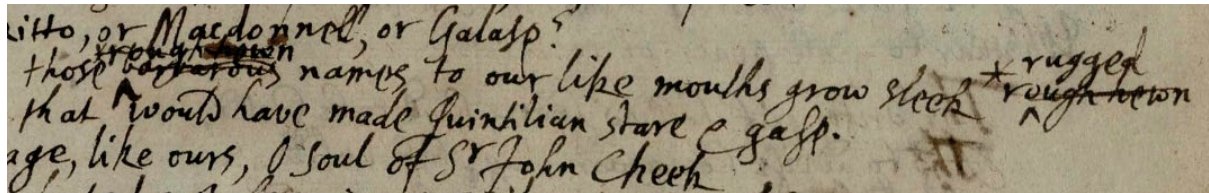 itto, or Macdonnell, or Galasp?
rough hewn
those barbarous names to our like mouths grow sleek * rugged
rough hewn
that would have made Quintilian stare & gasp.
age, like ours, O soul of Sr John Cheek